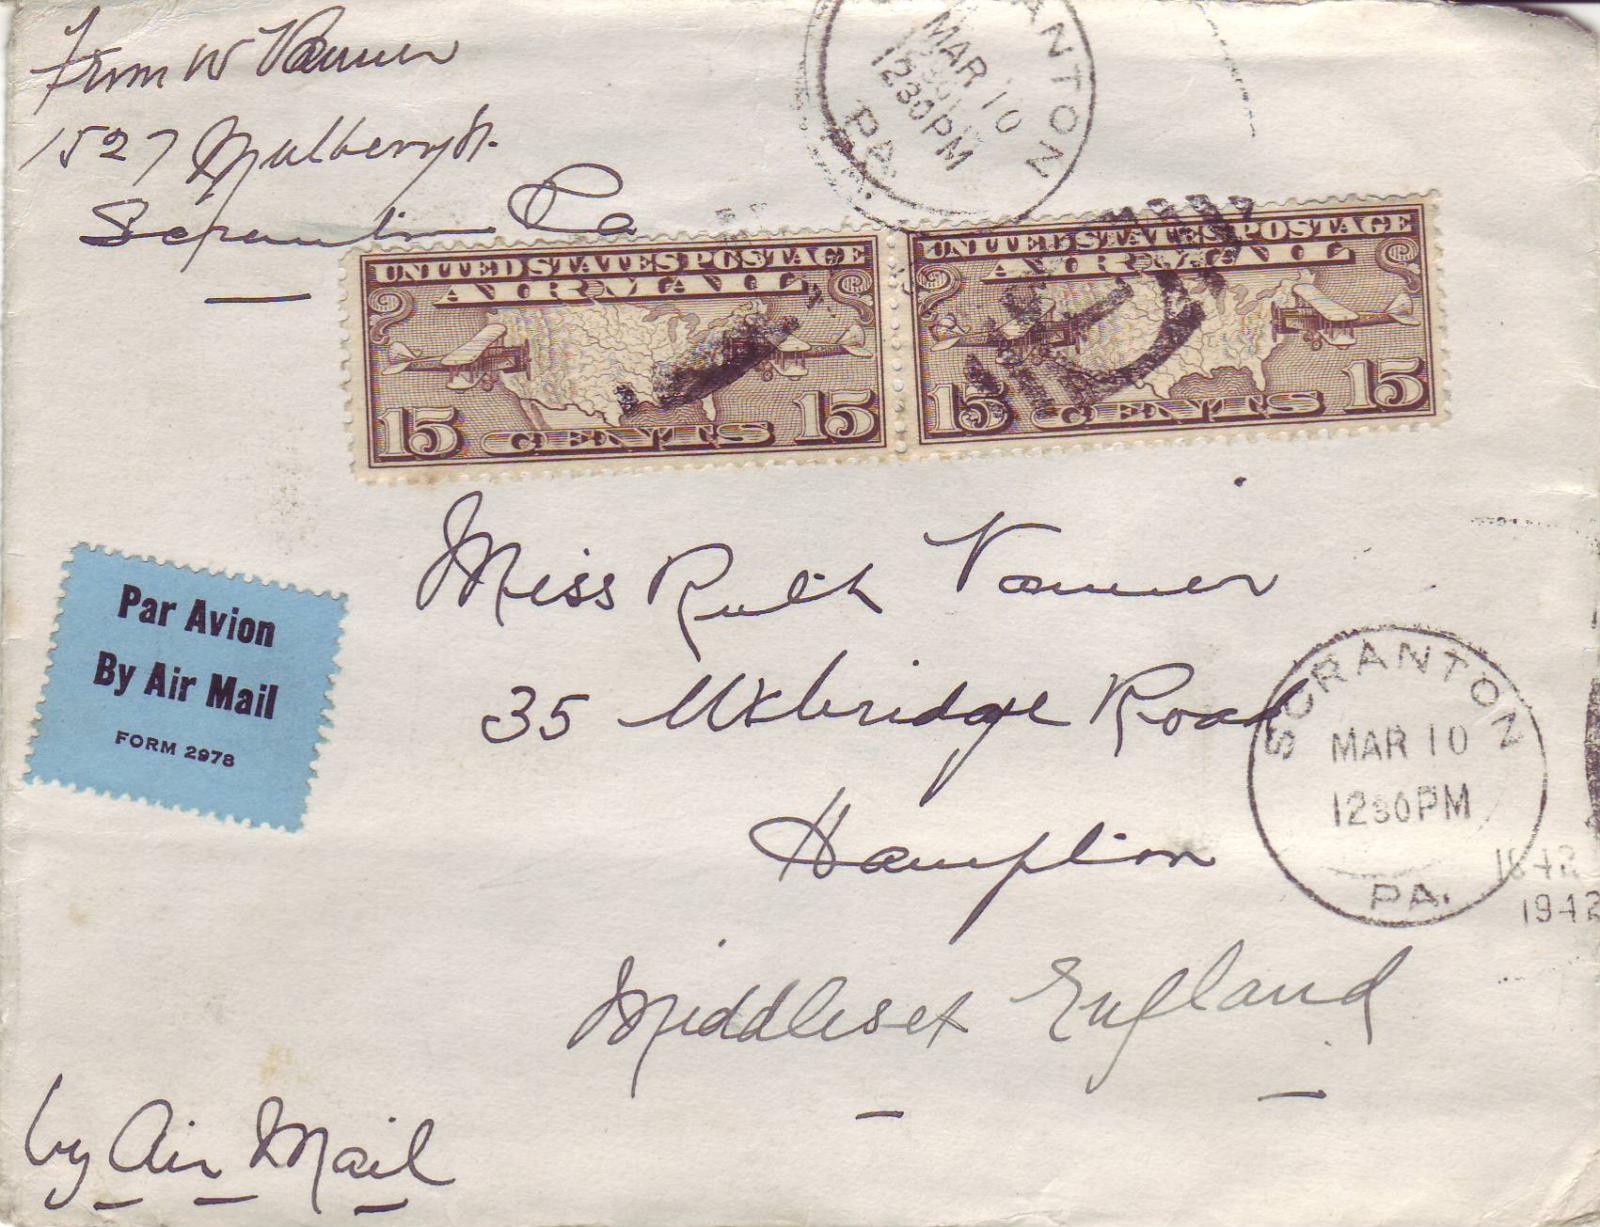 From W Vanner
1527 Mulberry St.
Scranton Pa
SCRANTON
MAR 10
1230PM
PA.
UNITED STATES POSTAGE
AIR MAIL
15 CENTS 15
UNITED STATES POSTAGE
AIR MAIL
15 CENTS 15
Par Avion
By Air Mail
FORM 2978
Miss Ruth Vanner
35 Uxbridge Road
Hampton
Middlesex England
SCRANTON
MAR 10
1230PM
PA.
1942
1942
by Air Mail